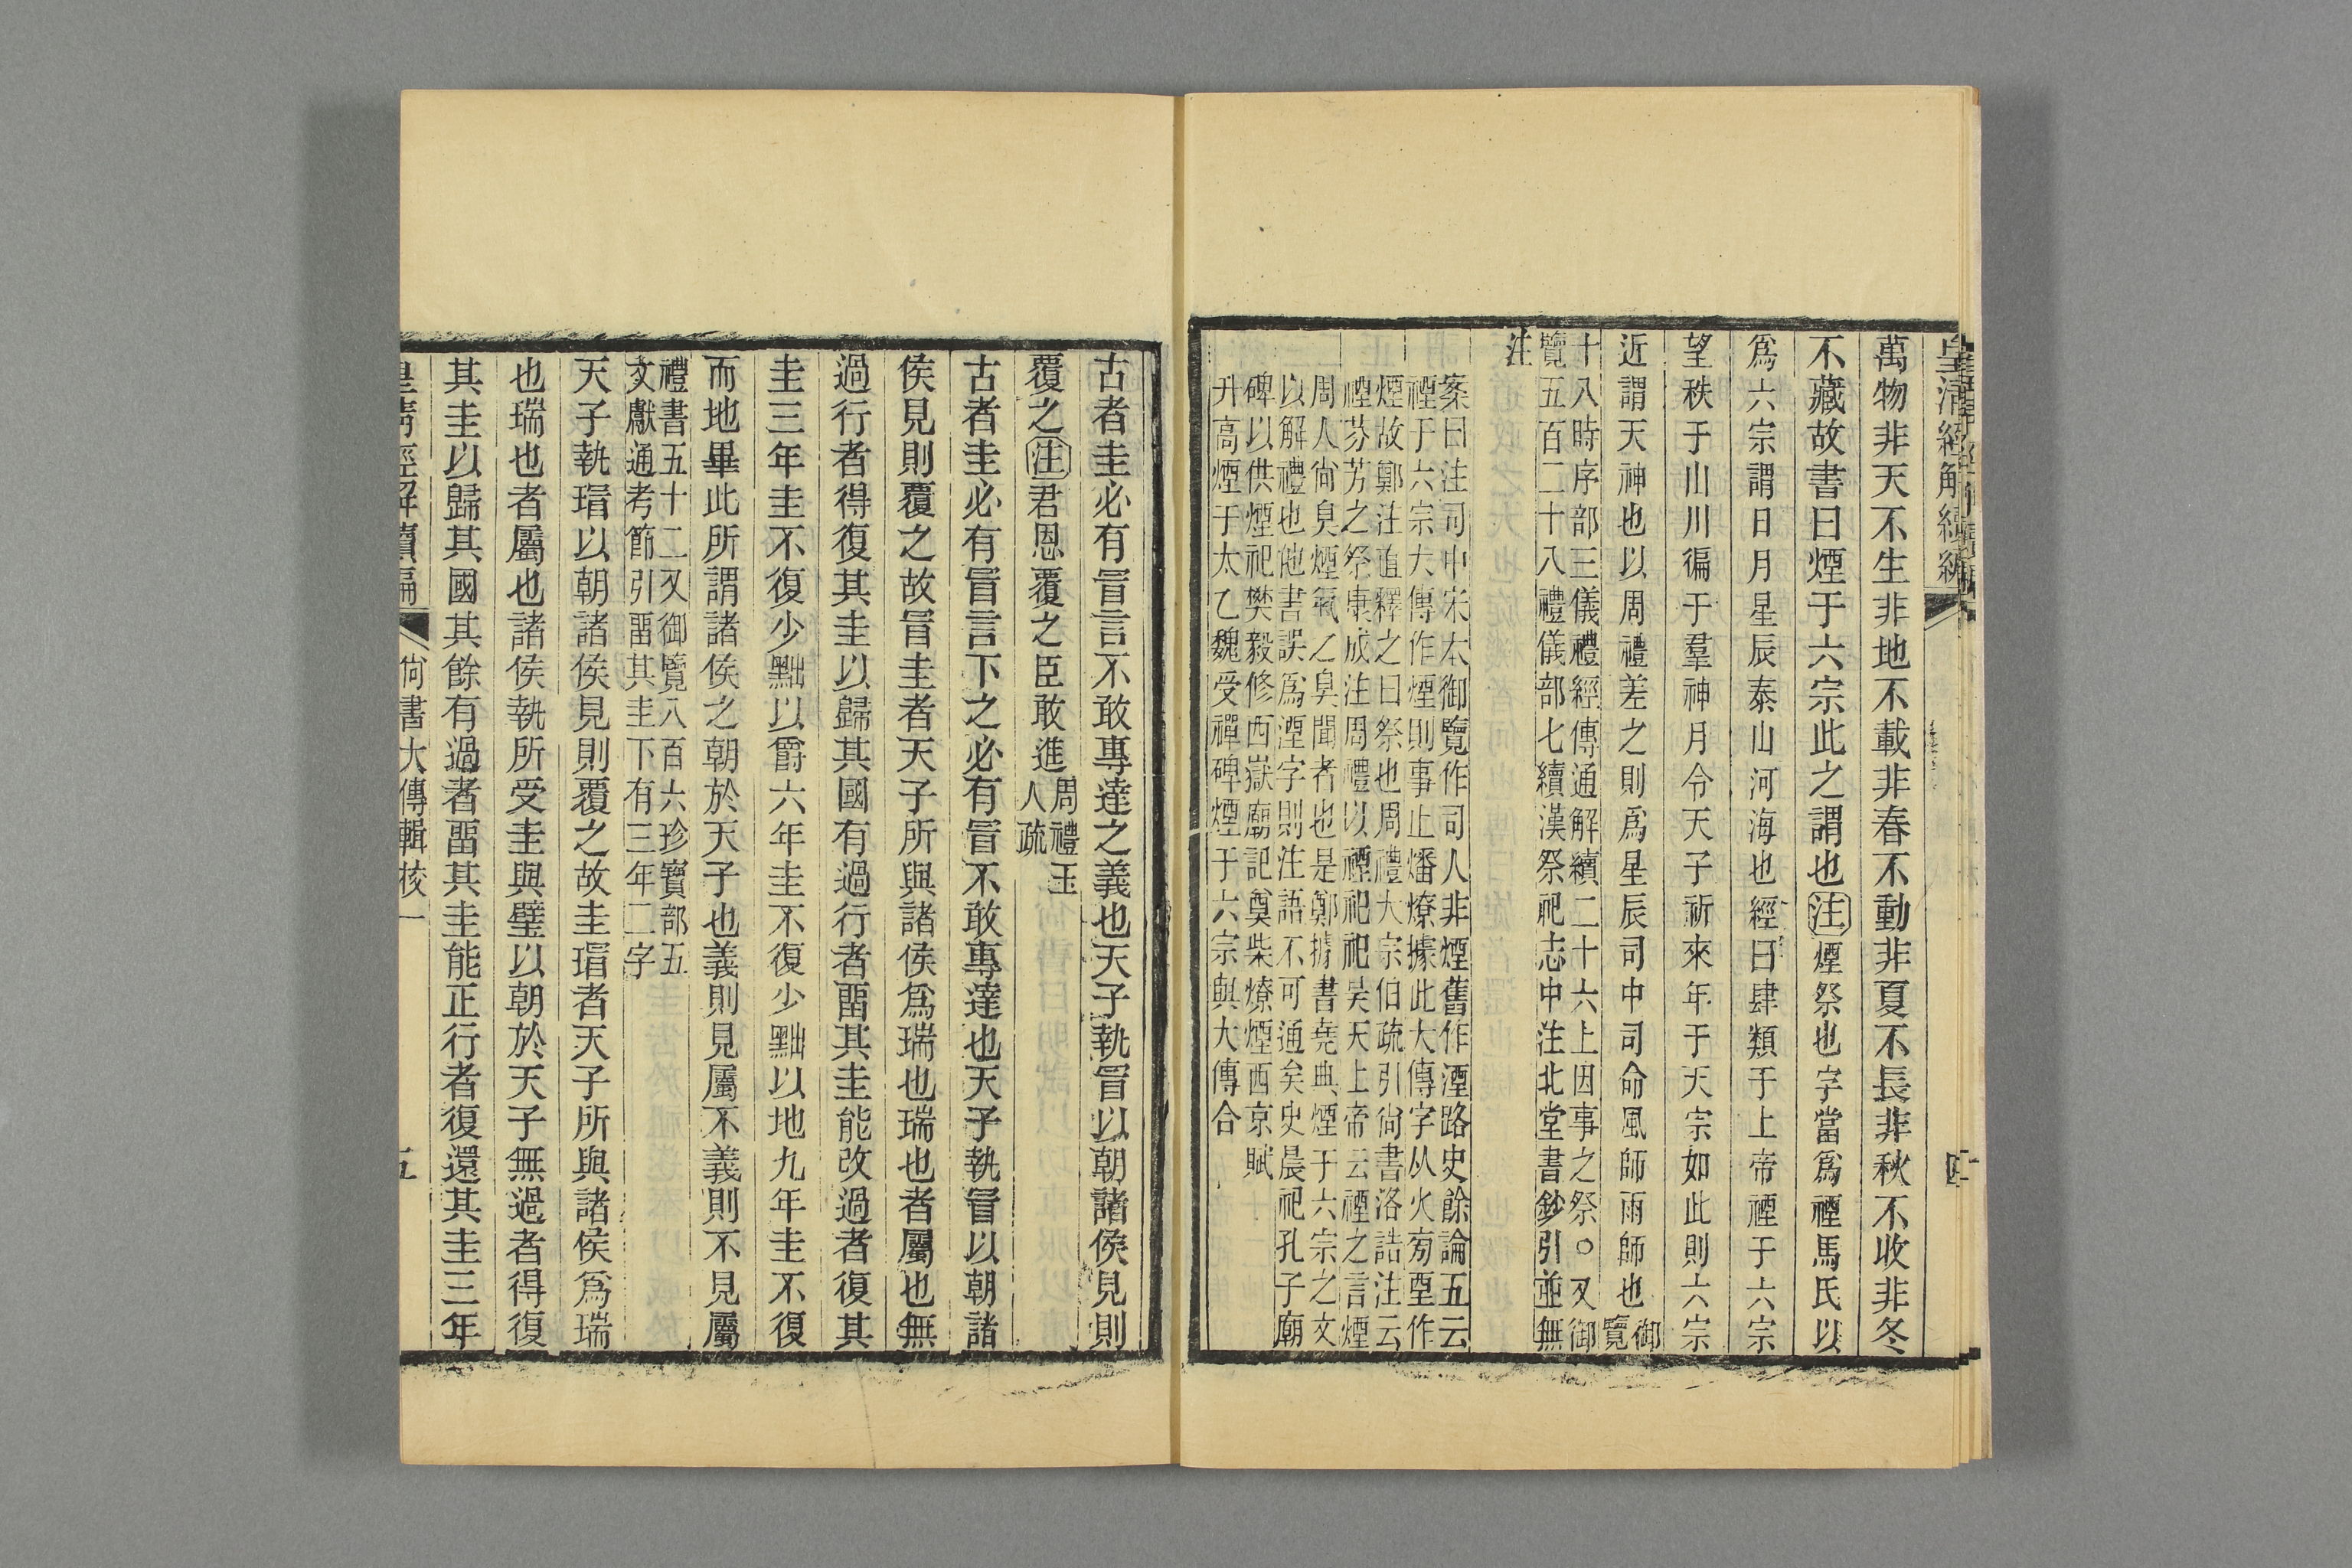 皇清經解續編
萬物非天不生非地不載非春不動非夏不長非秋不收非冬
不藏故書曰煙于六宗此之謂也注煙祭也字當爲禋馬氏以
爲六宗謂日月星辰泰山河海也經曰肆類于上帝禋于六宗
望秩于山川徧于羣神月令天子祈來年于天宗如此則六宗
近謂天神也以周禮差之則爲星辰司中司命風師雨師也御
覽
十八時序部三儀禮經傳通解續二十六上因事之祭○又御
覽五百二十八禮儀部七續漢祭祀志中注北堂書鈔引並無
注
案曰注司中宋本御覽作司人非煙舊作湮路史餘論五云
禋于六宗大傳作煙則事止燔燎據此大傳字从火㫄垔作
煙故鄭注直釋之曰祭也周禮大宗伯疏引尚書洛誥注云
禋芬芳之祭康成注周禮以禋祀祀昊天上帝云禋之言煙
周人尚臭煙氣之臭聞者也是鄭據書堯典煙于六宗之文
以解禮也他書誤爲湮字則注語不可通矣史晨祀孔子廟
碑以供煙祀樊毅修西嶽廟記奠柴燎煙西京賦
升高煙于太乙魏受禪碑煙于六宗與大傳合
古者圭必有冒言不敢專達之義也天子執冒以朝諸侯見則
覆之注君恩覆之臣敢進周禮玉
人疏
古者圭必有冒言下之必有冒不敢專達也天子執冒以朝諸
侯見則覆之故冒圭者天子所與諸侯爲瑞也瑞也者屬也無
過行者得復其圭以歸其國有過行者畱其圭能改過者復其
圭三年圭不復少黜以爵六年圭不復少黜以地九年圭不復
而地畢此所謂諸侯之朝於天子也義則見屬不義則不見屬
禮書五十二又御覽八百六珍寶部五
文獻通考節引畱其圭下有三年二字
天子執瑁以朝諸侯見則覆之故圭瑁者天子所與諸侯爲瑞
也瑞也者屬也諸侯執所受圭與璧以朝於天子無過者得復
其圭以歸其國其餘有過者畱其圭能正行者復還其圭三年
皇清經解續編
尚書大傳輯校一
五